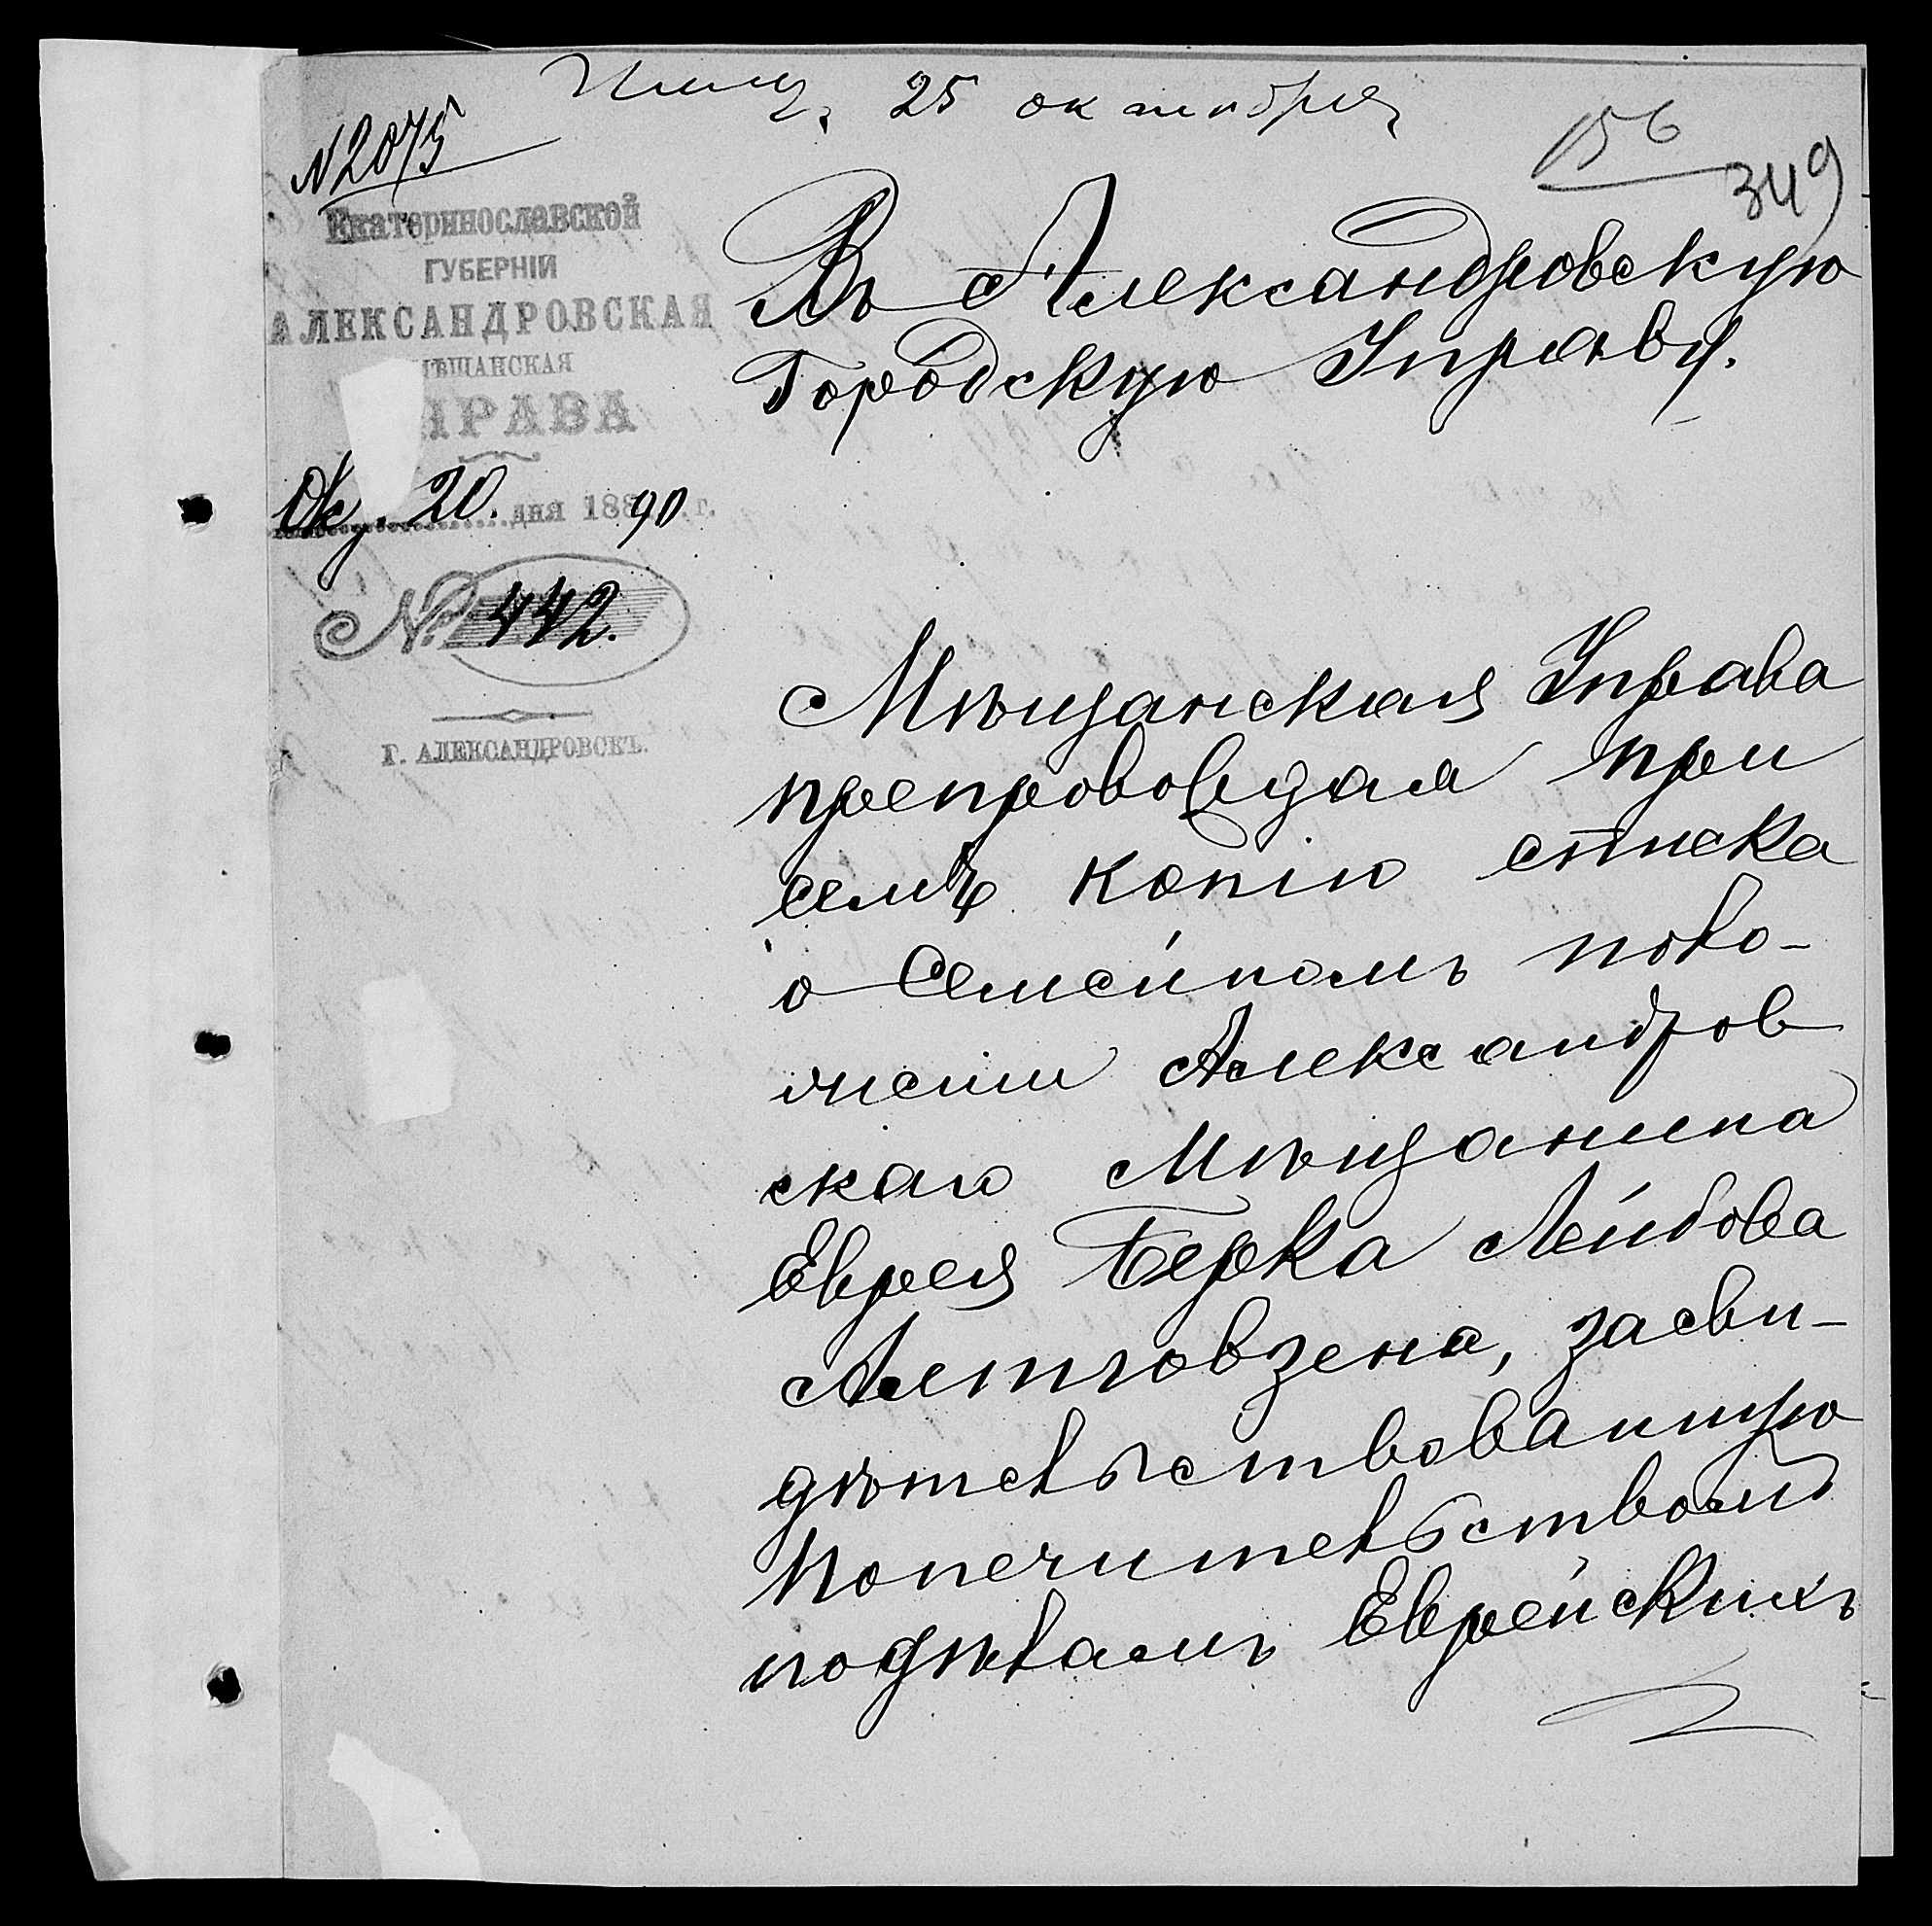 25 октября
№2075
156
349
Екатеринославской
ГУБЕРНІИ
АЛЕКСАНДРОВСКАЯ
МѢЩАНСКАЯ
УПРАВА
Ок. 20. дня 188 90 г.
№ 442.
Г. АЛЕКСАНДРОВСКЪ.
Въ Александровскую
Городскую Управу.
Мѣщанская Управа
препровождая при
семъ копію списка
о Семейномъ поло-
женіи Александров
скаго Мѣщанина
Еврея Берка Лейбова
засви-
дѣтельствованную
Попечительствомъ
по дѣламъ Еврейскихъ